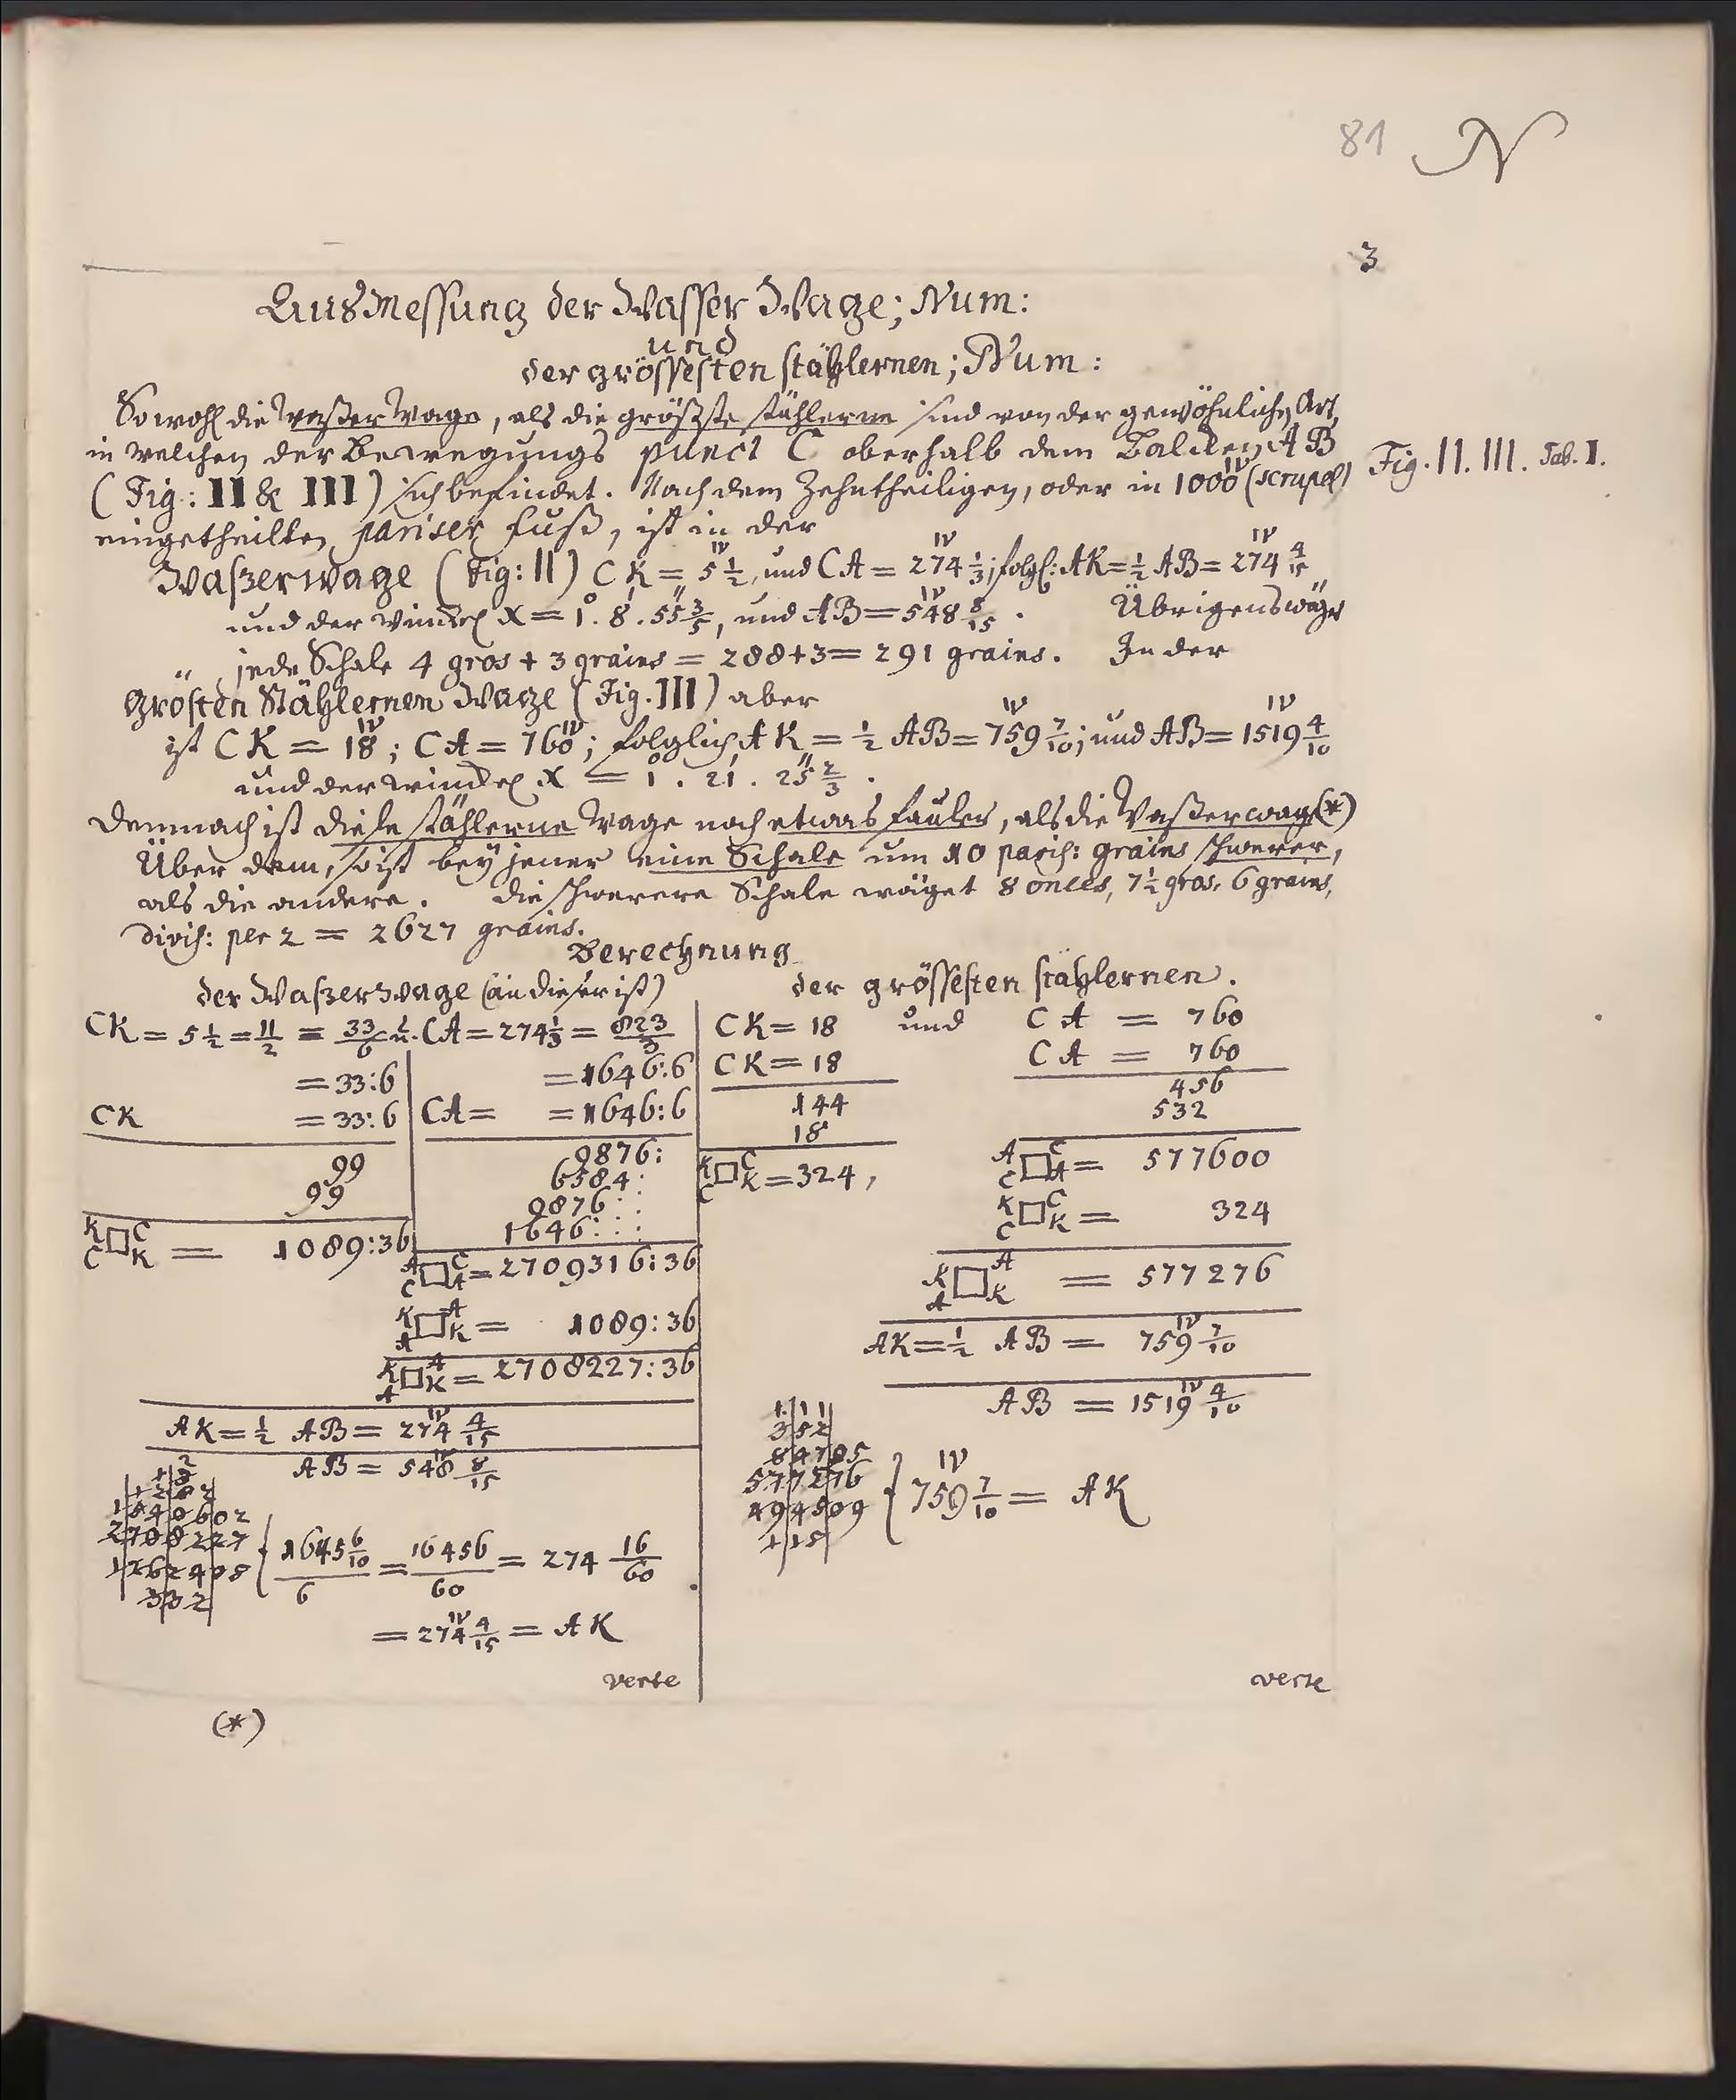 81 N
3
Ausmessung der Wasser Wage; Num:
und
der grössesten stählernen; Num:
Sowohl die Waßer Wage, als die größste stählerne sind von der gewöhnlichen Art,
in welchen der Bewegungs punct C oberhalb dem Balcken AB
Fig. II. III. Tab. I.
(Fig: II & III) sich befindet. Nach dem Zehntheiligen, oder in 1000 IV (scrupel)
eingetheilten pariser fuß, ist in der
Waßerwage (Fig: II) CK = 5 IV 1/2, und CA = 274 IV 1/3; folgl: AK = 1/2 AB = 274 IV 4/15
und der Winckel X = 1°. 8'. 55'' 3/5, und AB = 548 IV 8/15. Übrigens wäget
jede Schale 4 gros + 3 grains = 288 + 3 = 291 grains. In der
grösten Stählernen Wage (Fig. III) aber
ist CK = 18 IV; CA = 760 IV; folglich AK = 1/2 AB = 759 IV 7/10; und AB = 1519 IV 4/10
und der Winckel X = 1°. 21'. 25'' 2/3.
Demnach ist diese stählerne Wage noch etwas fauler, als die Waßerwage (*)
Über dem, so ist bey jener eine Schale um 10 paris: grains schwerer,
als die andere. die schwerere Schale wäget 8 onces, 7 1/2 gros, 6 grains,
divis: per 2 = 2627 grains.
Berechnung
der Waßerwage (an dieser ist)
CK = 5 1/2 = 11/2 = 33/6 u. CA = 274 1/3 = 823/3
= 33:6 = 1646:6
CK = 33:6 CA = = 1646:6
99 9876:
99 6584:
9876:
1646:
K C □ C K = 1089:36
A C □ C A = 2709316:36
K A □ A K = 1089:36
K A □ A K = 2708227:36
AK = 1/2 AB = 274 IV 4/15
AB = 548 IV 8/15
2708227
{ 1645 6/10 / 6 = 16456/60 = 274 16/60
= 274 IV 4/15 = AK
verte
der grössesten stählernen.
CK = 18 und CA = 760
CK = 18 CA = 760
144 456
18 532
K C □ C K = 324,
A C □ C A = 577600
K C □ C K = 324
K A □ A K = 577276
AK = 1/2 AB = 759 IV 7/10
AB = 1519 IV 4/10
1 1 1
352
84785
577276
494509
115
{ 759 IV 7/10 = AK
verte
(*)